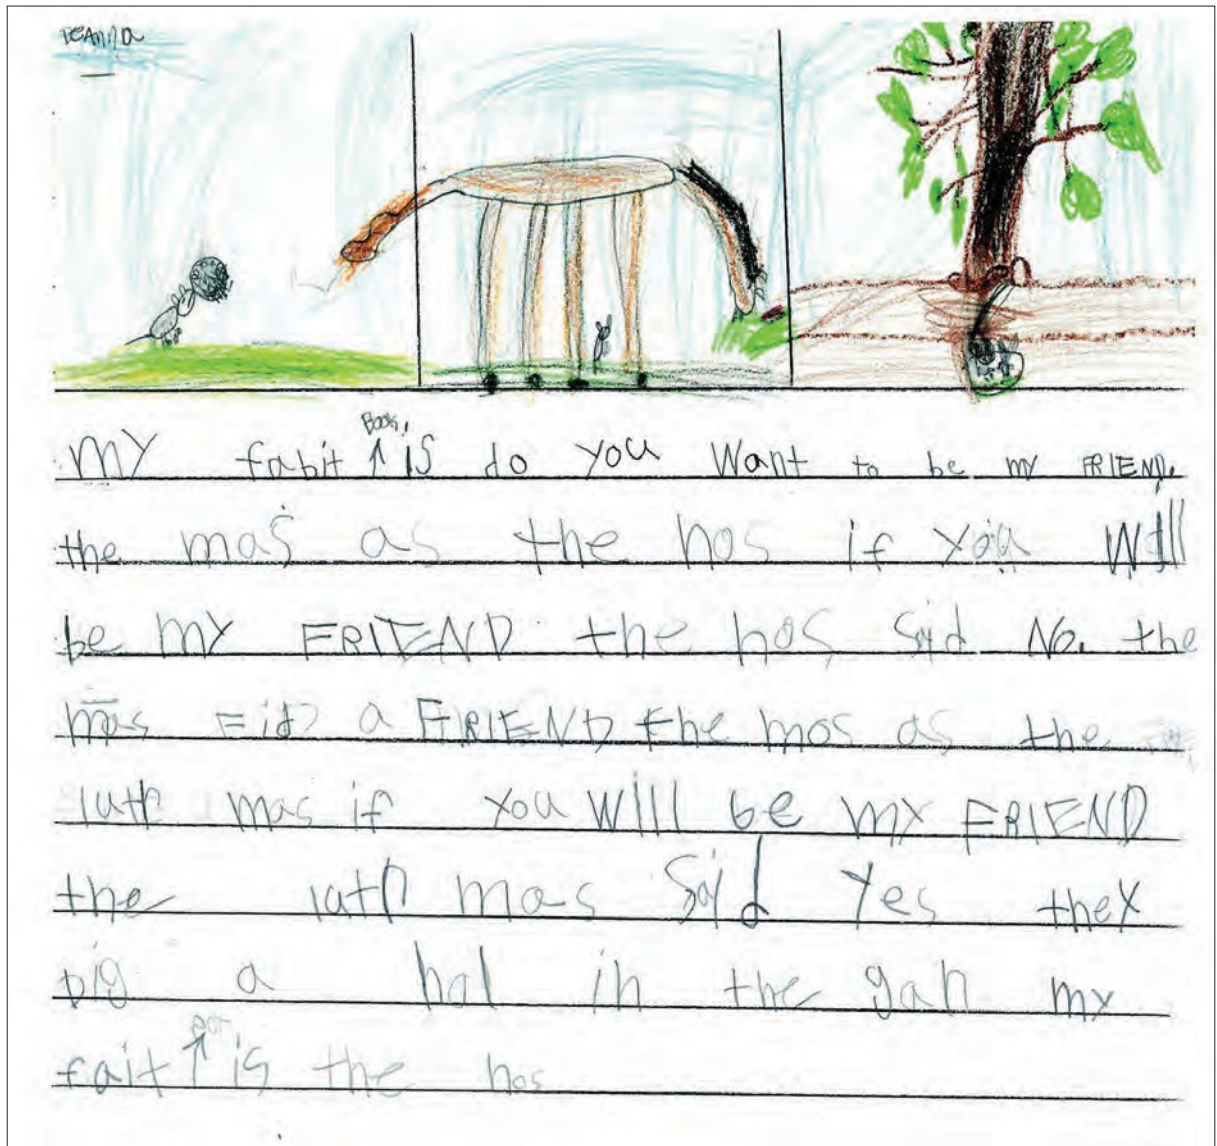 DeAnna
Book.
MY fabit ↑ is do you Want to be my FRIEND.
the mas as the hos if you Will
be MY FRIEND the hos Sajd No. the
mas Fid a FRIEND the mos as the
luth mas if you Will be my FRIEND
the luth mas Sajd Yes they
Dig a hol in the gan my
Pot
fait ↑ is the hos